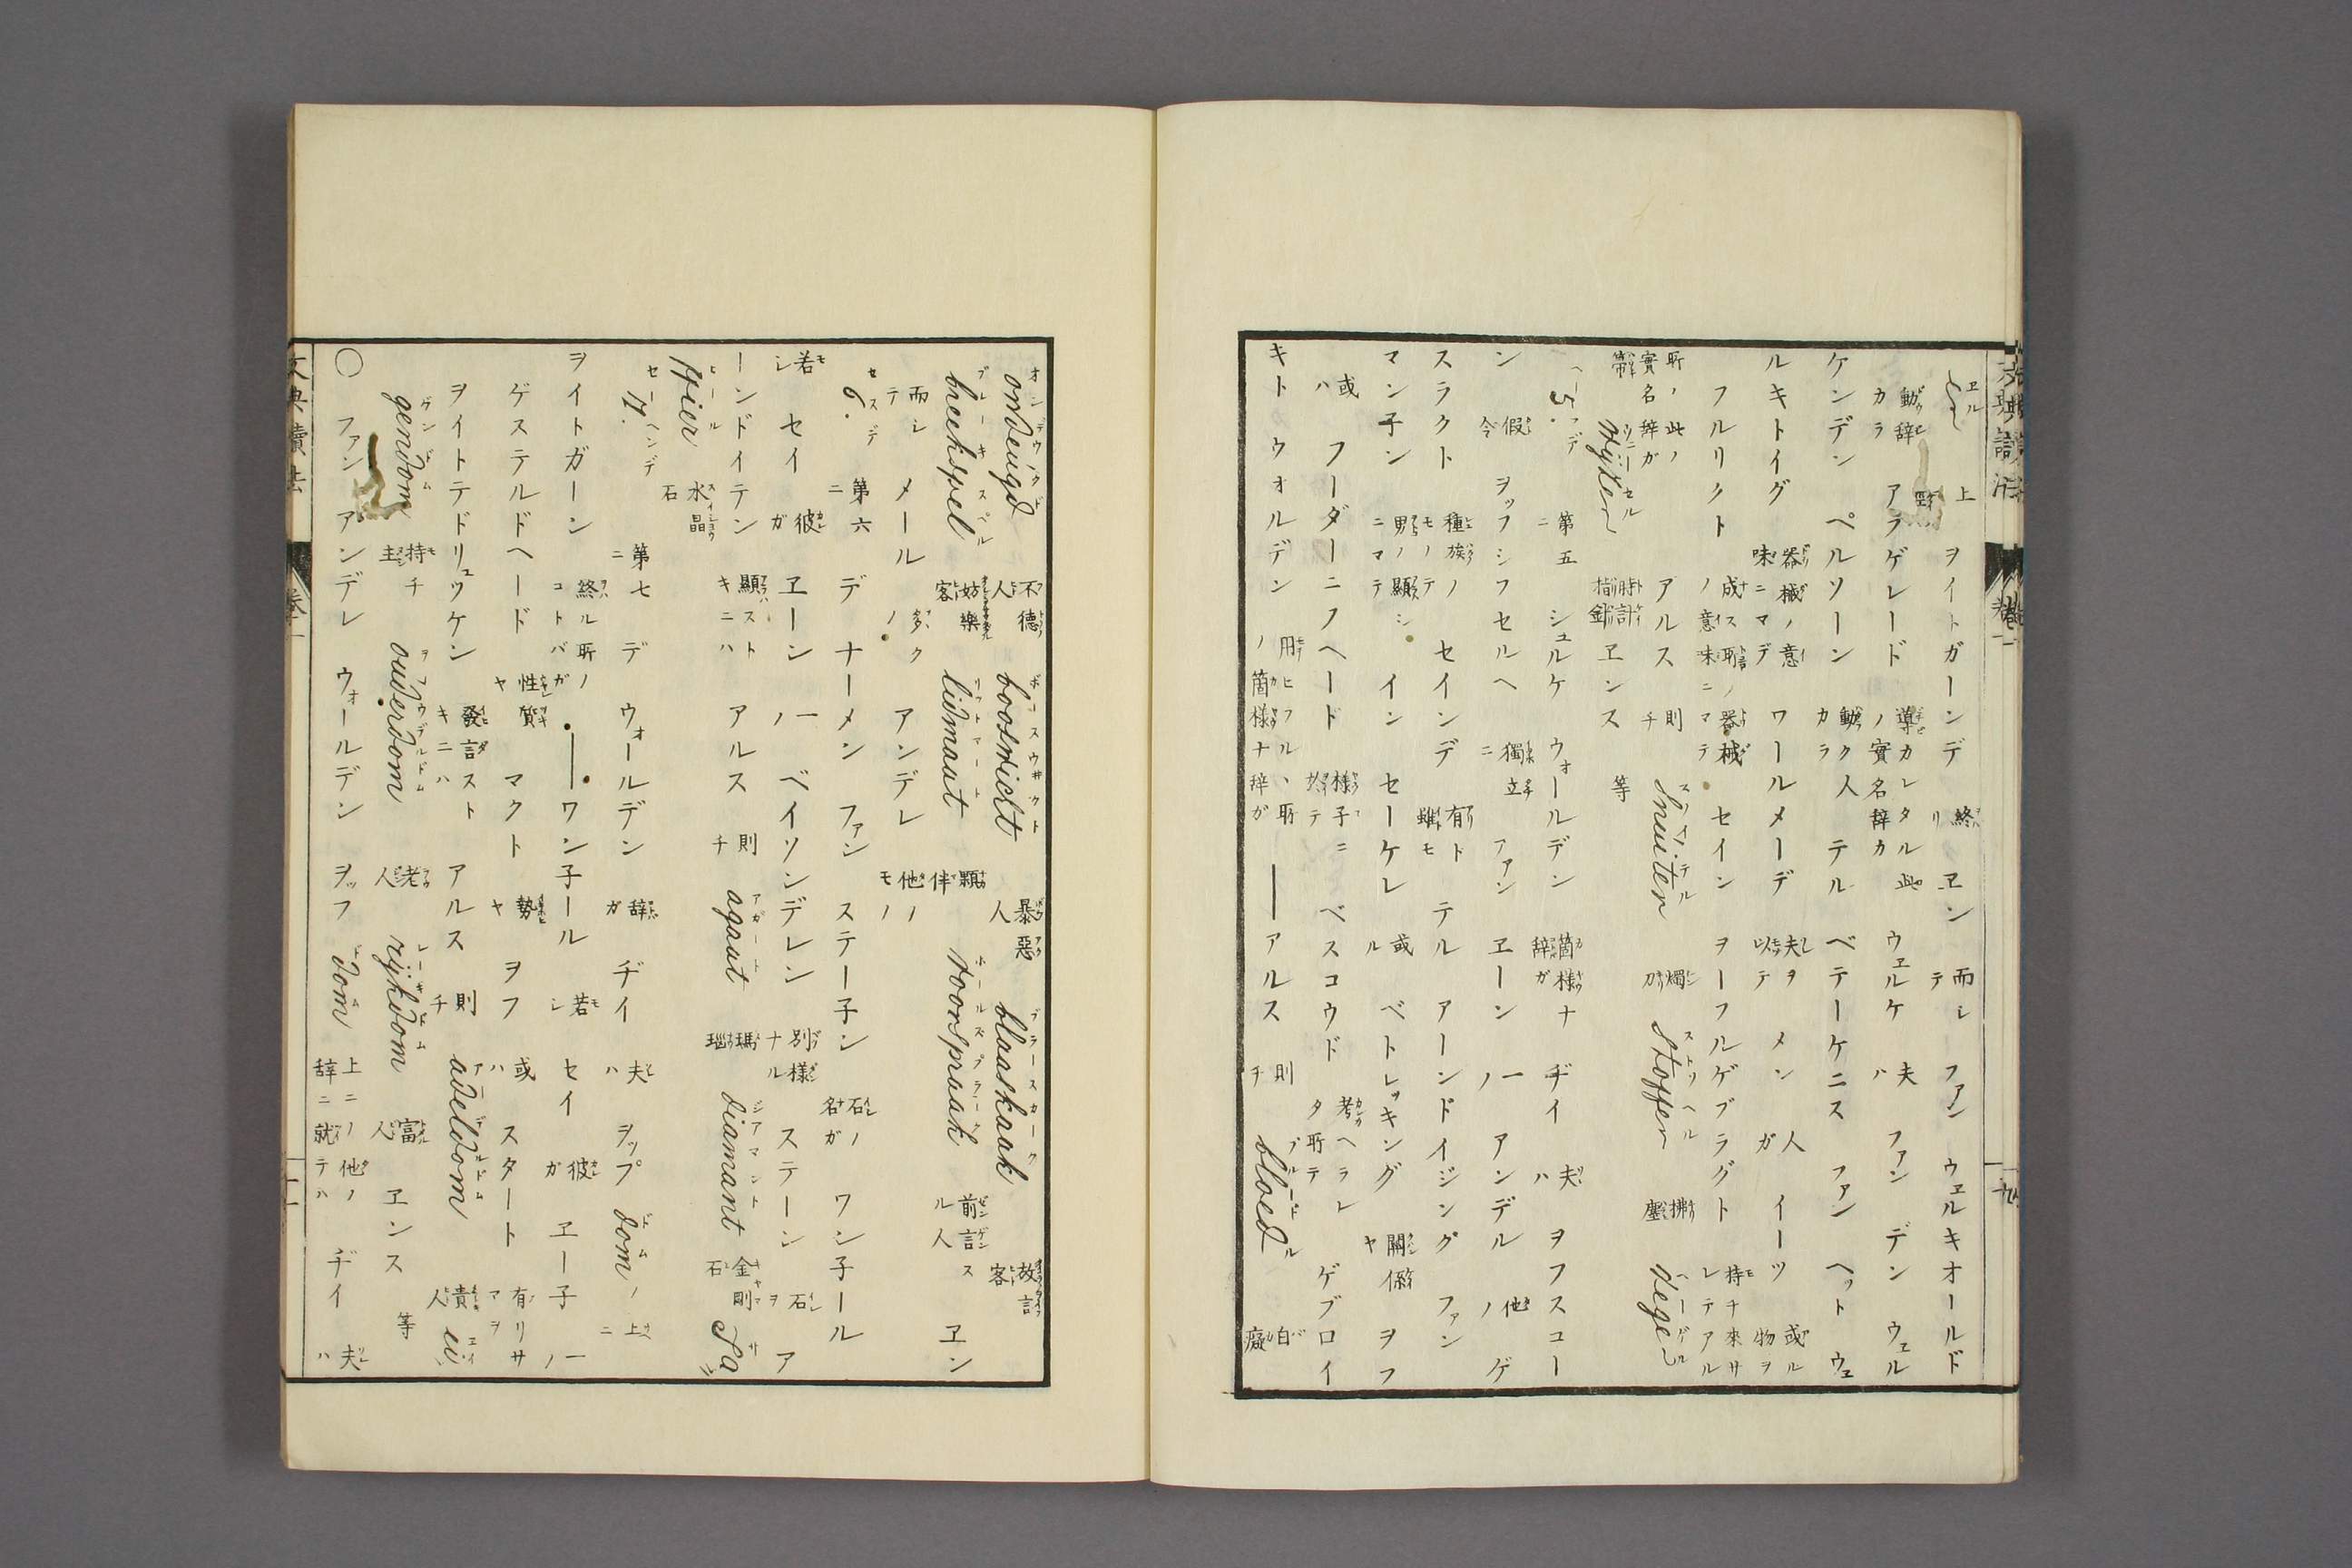 er 上 ヲイトガーンデ 終リ ヱン 而シテ ファン ウェルキオールド
動辞カラ アフゲレード 導カレタル ノ實名辞カ ウェルケ 夫ハ ファン デン ウェル
ケンデン ペルソーン 動ク人カラ テル ベテーケニス ファン ヘット ウェ
ルキトイグ 器械ノ意味ニマデ ワールメーデ 夫ヲ以テ メン 人ガ イーツ 或ル物ヲ
フルリクト 成ス所ノ意味ニ 器械マテ セイン ヲーフルゲブラグト 持チ來サレテアル
所ノ此ノ實名辞ガ アルス 則チ snuiter 燭刀 stoffer 拂塵 veger
箒 wijzer 時計指針 ヱンス 等
5. 第五ニ シュルケ ウォールデン 箇様ナ辞ガ ヂイ 夫ハ ヲフスコー
ン 假令 ヲッフシフセルヘ 獨立ニ ファン ヱーン 一ノ アンデル 他ノ ゲ
スラクト 種族ノモノテ セインデ 有ト雖モ テル アーンドイジング ファン
マン子ン 男ノ顯シニマテ イン セーケレ 或ル ベトレッキング 關係ヤ ヲフ
或ハ フーダーニフヘード 様子ニ於テ ベスコウド 考ヘラレタ所テ ゲブロイ
キト ウォルデン 用ヒフル、所ノ箇様ナ辞ガ ― アルス 則チ bloed 白癡
ondeugd 不德人 booswicht 暴惡人 blaaskaak 故言客
breekspel 妨樂客 lidmaat 顆伴 voorspraak 前言スル人 ヱン
而シテ メール 多クノ アンデレ 他ノモノ
6. 第六ニ デ ナーメン ファン ステー子ン 石ノ名ガ ワン子ール
若シ セイ 彼ガ ヱーン 一ノ ベイソンデレン 別様ナル ステーン 石ヲ ア
ーンドイテン 顯ストキニハ アルス 則チ agaat 瑪瑙 diamant 金剛石 Sa
ffier 水晶石
7. 第七ニ デ ウォールデン 辞ガ ヂイ 夫ハ ヲップ dom ノ上ニ
ヲイトガーン 終ル所ノコトバガ ― ワン子ール 若シ セイ 彼ガ ヱー子 一ノ
ゲステルドヘード 性質ヤ マクト 勢ヤ ヲフ 或ハ スタート 有リサマヲ
ヲイトテドリュッケン 發言ストキニハ アルス 則チ adeldom 貴人 ei
gendom 持チ主 ouderdom 老人 rijkdom 富人 ヱンス 等
〇 ファン アンデレ ウォールデン ヲッフ dom 上ニノ他ノ辞ニ就テハ ヂイ 夫ハ